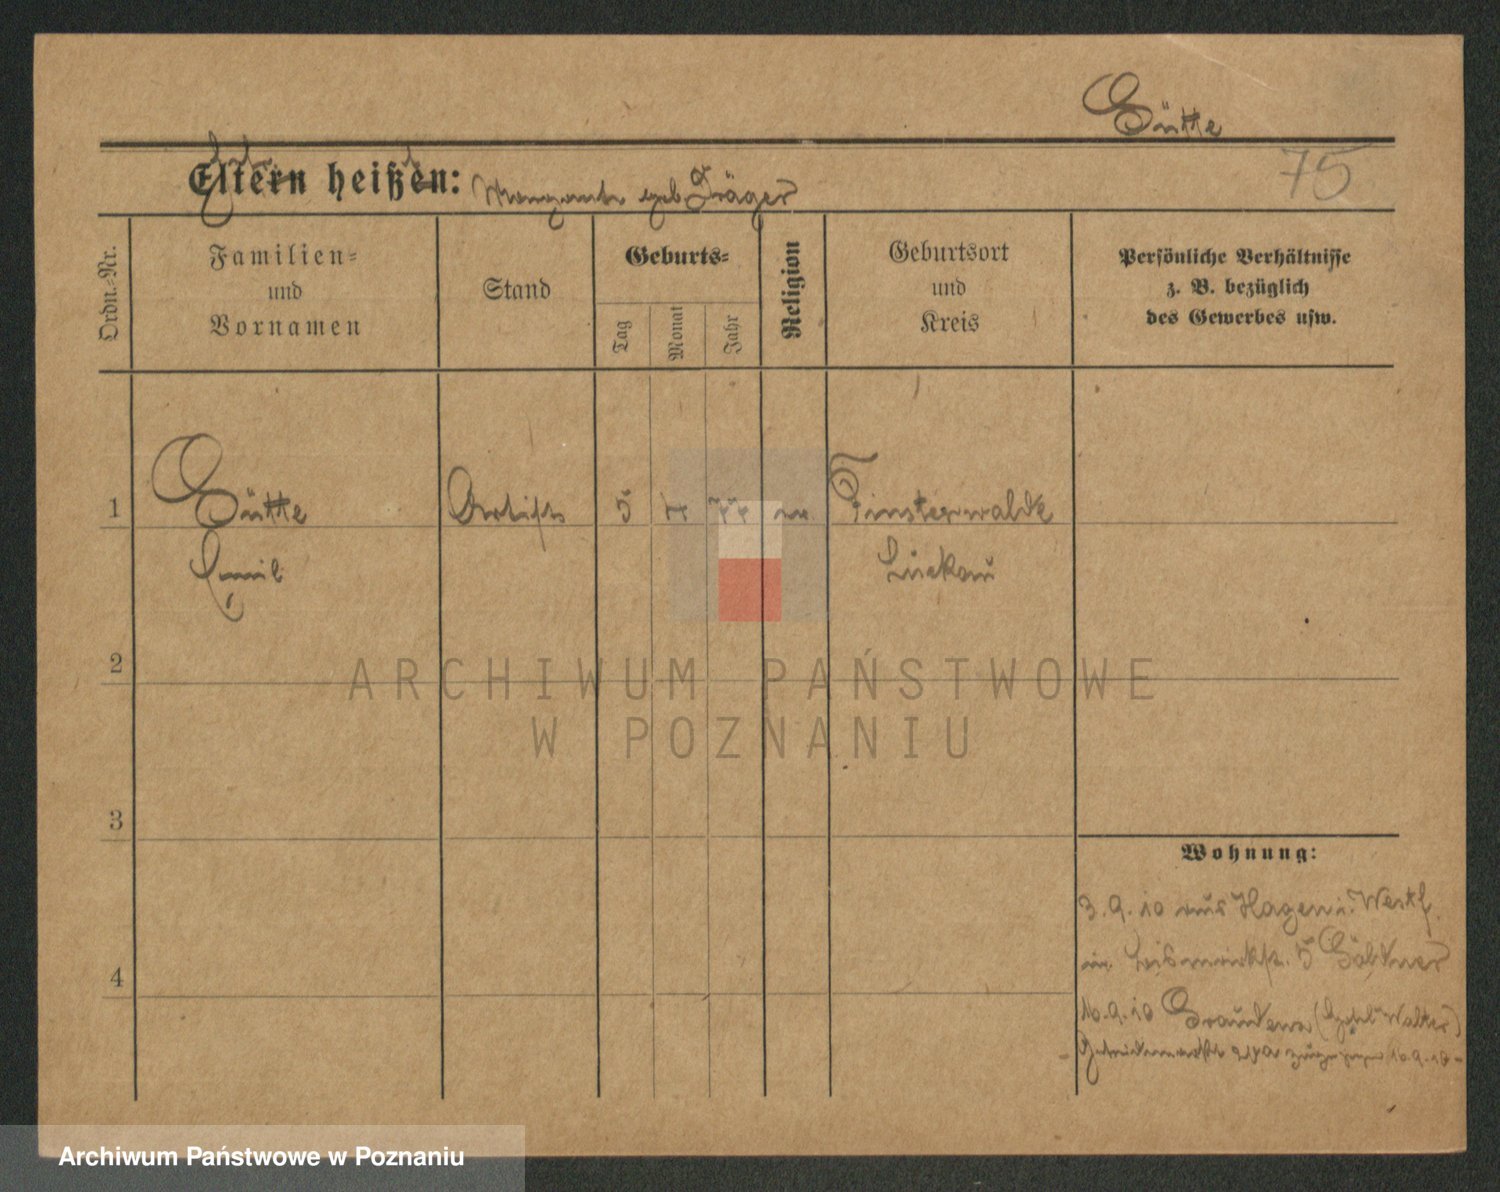 Gürtte
75
Eltern heißen:
geb. Jäger
Ordn.-Nr.
Familien-
und
Vornamen
Stand
Geburts-
Tag
Monat
Jahr
Religion
Geburtsort
und
Kreis
Persönliche Verhältnisse
z. B. bezüglich
des Gewerbes usw.
1
Artist
5
4
77
ev.
Finsterwalde
Emil
Luckau
2
ARCHIWUM PAŃSTWOWE
W POZNANIU
3
Wohnung:
3.9.10 aus Hagen i. Westf.
in Bismarckstr. 5
4
16.9.10 Graudenz (Hotel Walter)
Getreidemarkt
Archiwum Państwowe w Poznaniu